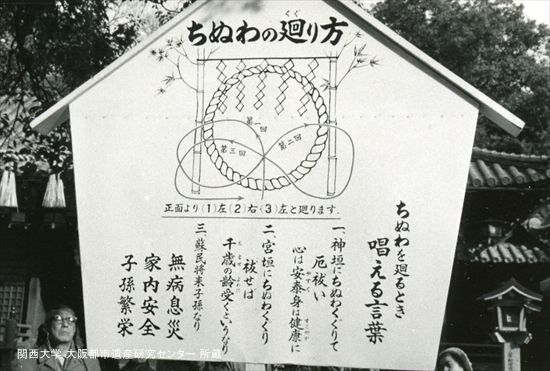 ちぬわの廻り方
くぐ
第一回
第二回
第三回
正面より(1)左(2)右(3)左と廻ります.
ちぬわを廻るとき
唱える言葉
一、神垣にちぬわくぐりて
厄祓い
心は安泰身は健康に
二、宮垣にちぬわくぐり
祓せば
千歳の齢受くというなり
三、蘇民将来子孫なり
無病息災
家内安全
子孫繁栄
関西大学 大阪都市遺産研究センター 所蔵